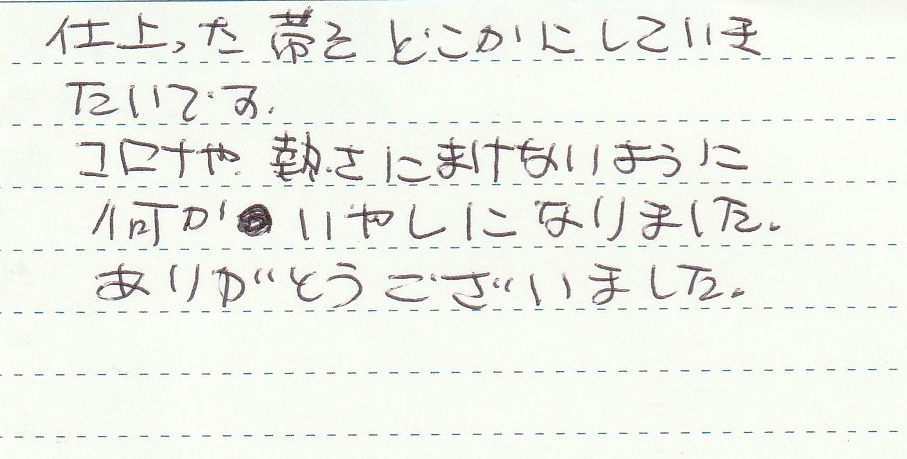 仕上った帯を どこかにしていき
たいです.
コロナや 熱さにまけないように
何か いやしになりました.
ありがとうございました.